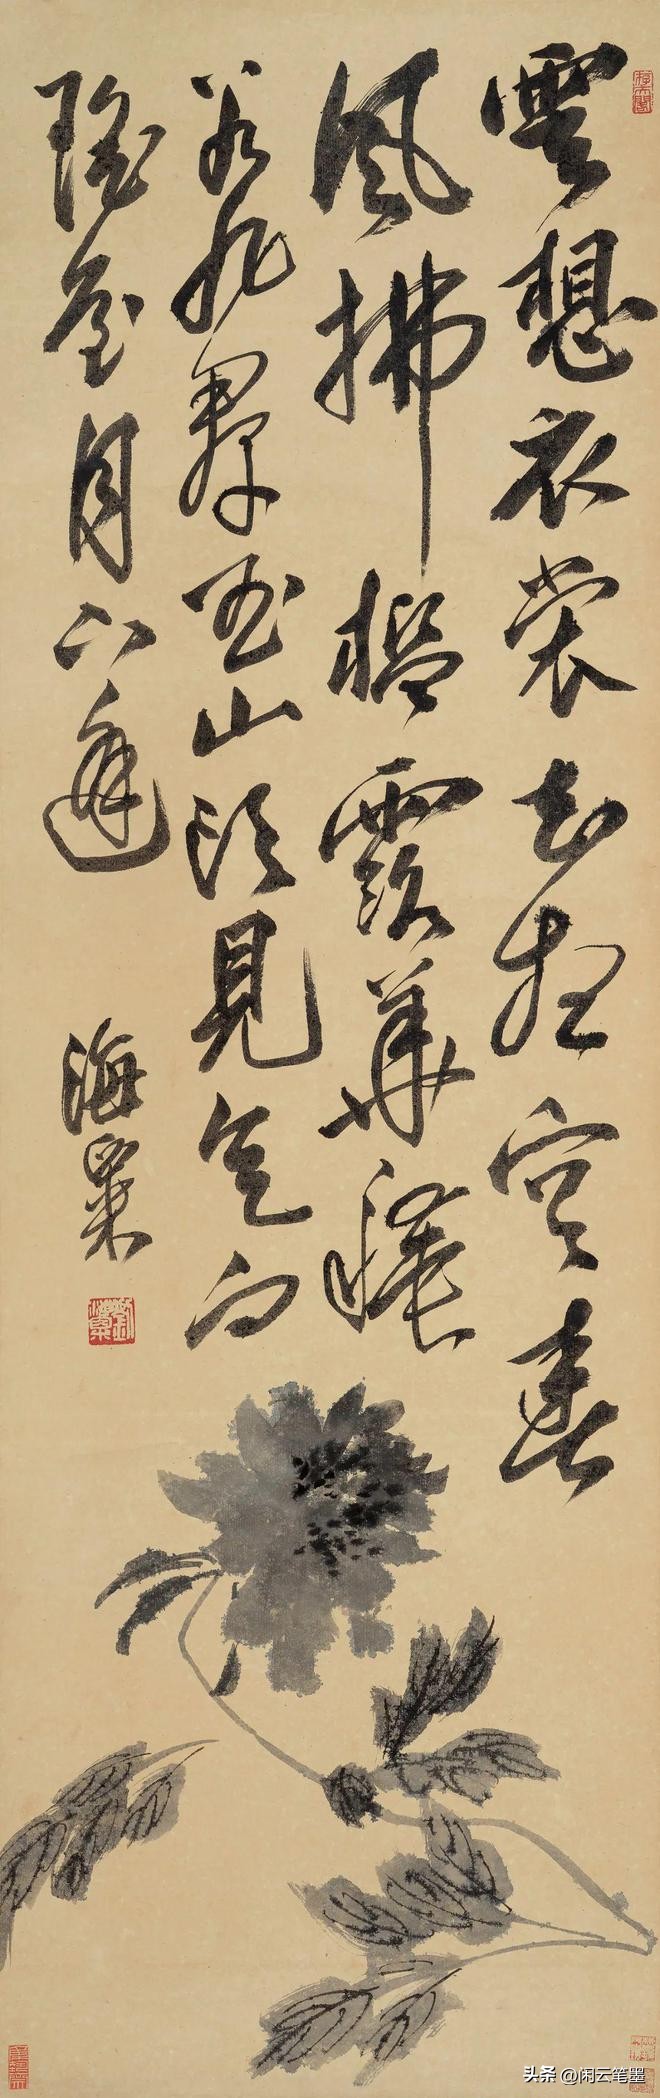 雲想衣裳花想容春
風拂檻露華濃
若非羣玉山頭見會向
瑤臺月下逢
海粟
劉海粟
头条 @闲云笔墨